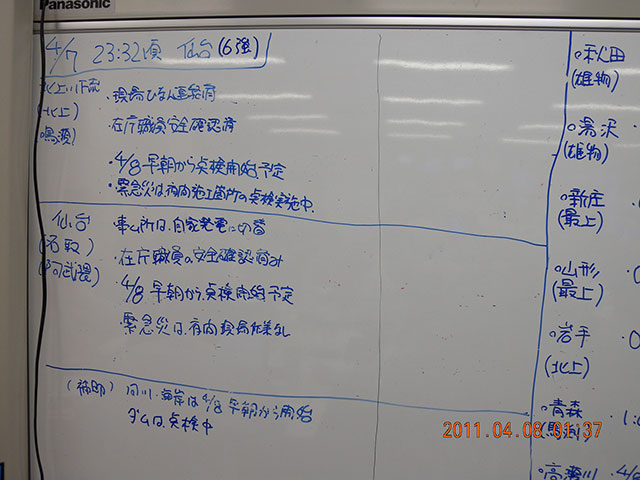 Panasonic
4/7 23:32頃 仙台(6強)
北上川下流
(北上)
(鳴瀬)
・現場ひなん連絡済
・在庁職員安全確認済
・4/8 早朝から点検開始予定
・緊急災は、夜間施工箇所の点検実施中.
仙台
(名取)
(阿武隈)
事ム所は、自家発電に切替
・在庁職員の安全確認済み
・4/8 早朝から点検開始予定
・緊急災は、夜間現場作業なし
(補助) 河川・海岸は 4/8 早朝から開始
ダムは、点検中
○秋田
(雄物)
○湯沢
(雄物)
○新庄
(最上)
○山形
(最上)
○岩手
(北上)
○青森
(馬淵)
○高瀬川
2011.04.08 01:37